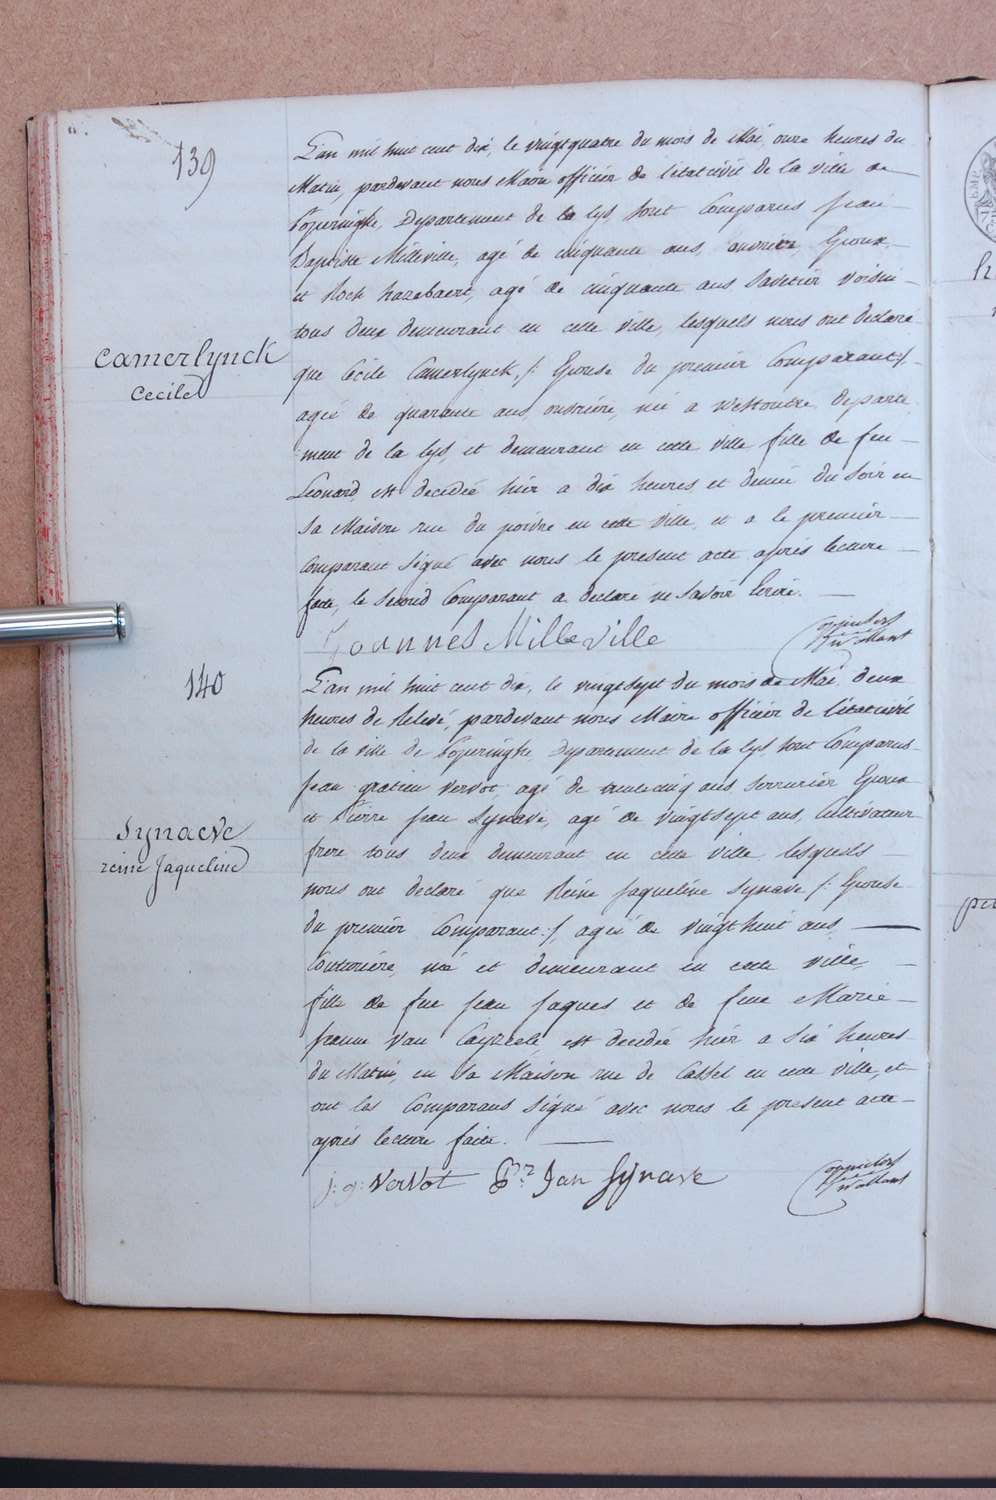 139
L'an mil huit cent dix, le vingtquatre du mois de Mai, onze heures du
Matin, pardevant nous Maire officier de l'état civil de la ville de
Poperinghe, Departement de la Lys, sont Comparus Jean
Baptiste Milleville, agé de cinquante ans, ouvrier, Epoux,
et Roch hazebaert, agé de cinquante ans Savetier voisin
tous deux demeurant en cette ville, lesquels nous ont declaré
Camerlynck
Cecile
que Cécile Camerlynck, /: Epouse du premier Comparant :/
agée de quarante ans, ouvrière, née a Westoutre, Departe
ment de la Lys, et demeurant en cette ville fille de feu
Leonard, est decedée hier a dix heures et demie du Soir en
sa Maison rue du poivre en cette ville, et a le premier
Comparant Signé avec nous le present acte après lecture
faite, le second Comparant a declaré ne savoir Ecrire.
Joannes Milleville
140
L'an mil huit cent dix, le vingtsept du mois de Mai, deux
heures de Relevé, pardevant nous Maire officier de l'état civil
de la ville de Poperinghe Departement de la Lys, sont Comparus
Jean gratien Vervot, agé de trentecinq ans, Serrurier Epoux
et Pierre Jean Synave, agé de vingtsept ans, Cultivateur
Synaeve
reine Jaqueline
frere tous deux demeurant en cette ville, lesquels
nous ont declaré que Reine Jaqueline Synave /: Epouse
du premier Comparant :/, agée de vingt huit ans,
Couturière, née et demeurant en cette ville,
fille de feu Jean Jaques et de feue Marie
Jeanne Van Cayzeele est decedée hier a six heures
du Matin, en sa Maison rue de Cassel en cette ville, et
ont les Comparans Signé avec nous le present acte
après lecture faite.
j: g: Vervot Pr Jan Synave